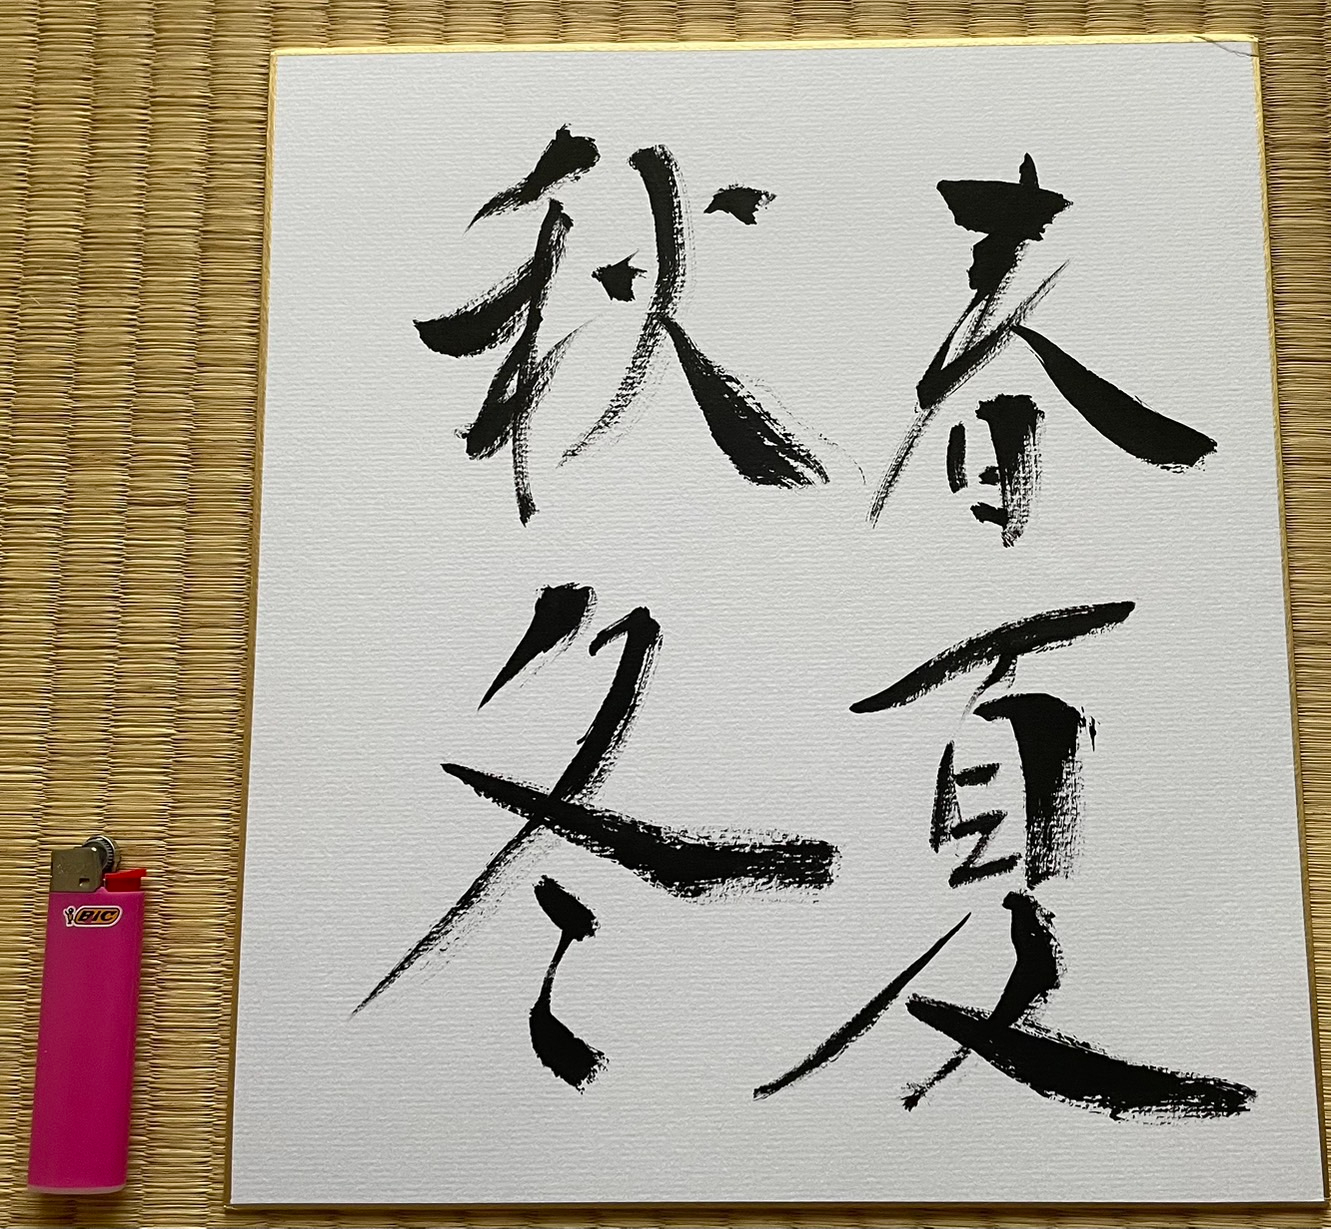 春夏
秋冬
BIC